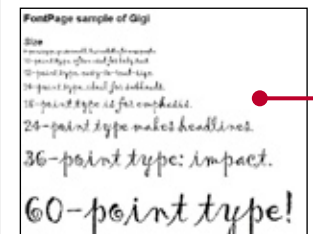 FontPage sample of Gigi
Size
10-point type often used for body text.
12-point type, easy-to-read size.
14-point type, ideal for subheads.
18-point type is for emphasis.
24-point type makes headlines.
36-point type: impact.
60-point type!